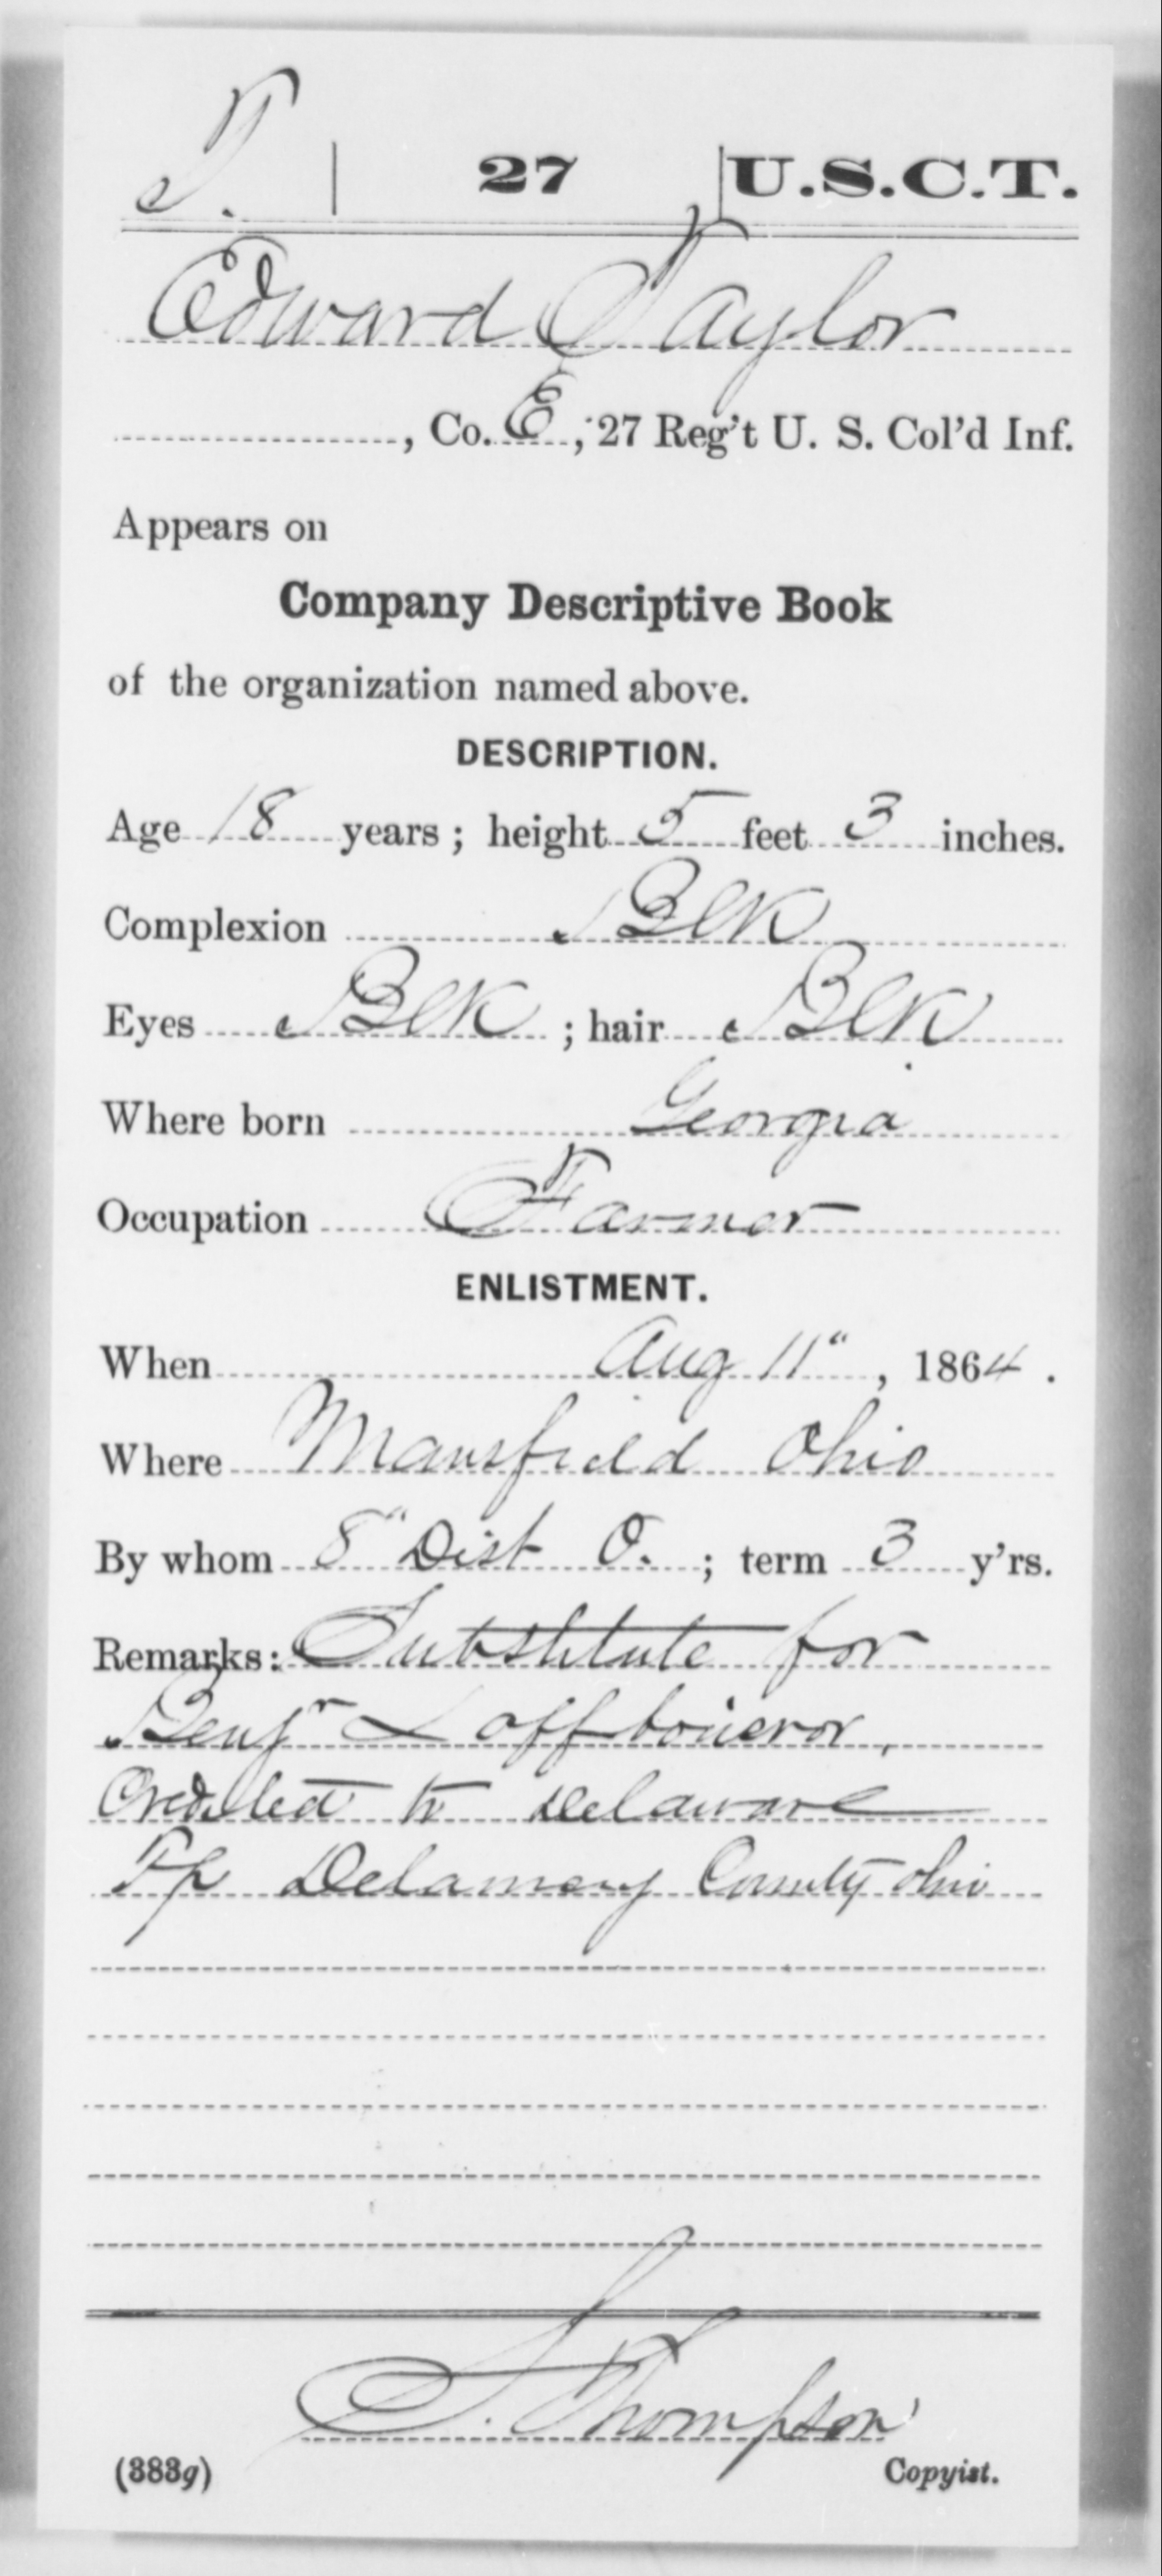 T. | 27 | U.S.C.T.
Edward Taylor
, Co. E, 27 Reg't U. S. Col'd Inf.
Appears on
Company Descriptive Book
of the organization named above.
DESCRIPTION.
Age 18 years; height 5 feet 3 inches.
Complexion Blk
Eyes Blk; hair Blk
Where born Georgia
Occupation Farmer
ENLISTMENT.
When Aug 11", 1864.
Where Mansfield Ohio
By whom 8" Dist O.; term 3 y'rs.
Remarks: Substitute for
Benj
Credited to Delaware
Tp County Ohio
S. Thompson
(383g) Copyist.